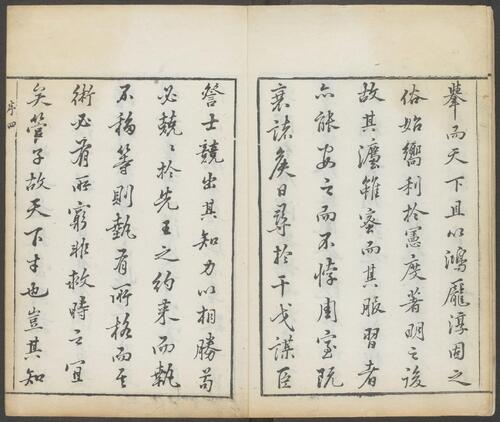 舉而天下且以鴻龐淳固之
俗始嚮利於憲度著明之後
故其灋雖蜜而其服習者
亦能安之而不悖周室既
衰諸侯日尋於干戈謀臣
士競出其知力以相勝苟
必兢〻於先王之約束而執
不移等則埶有所格而其
術必有所窮非救時之宜
矣管子故天下才也豈其知
序四